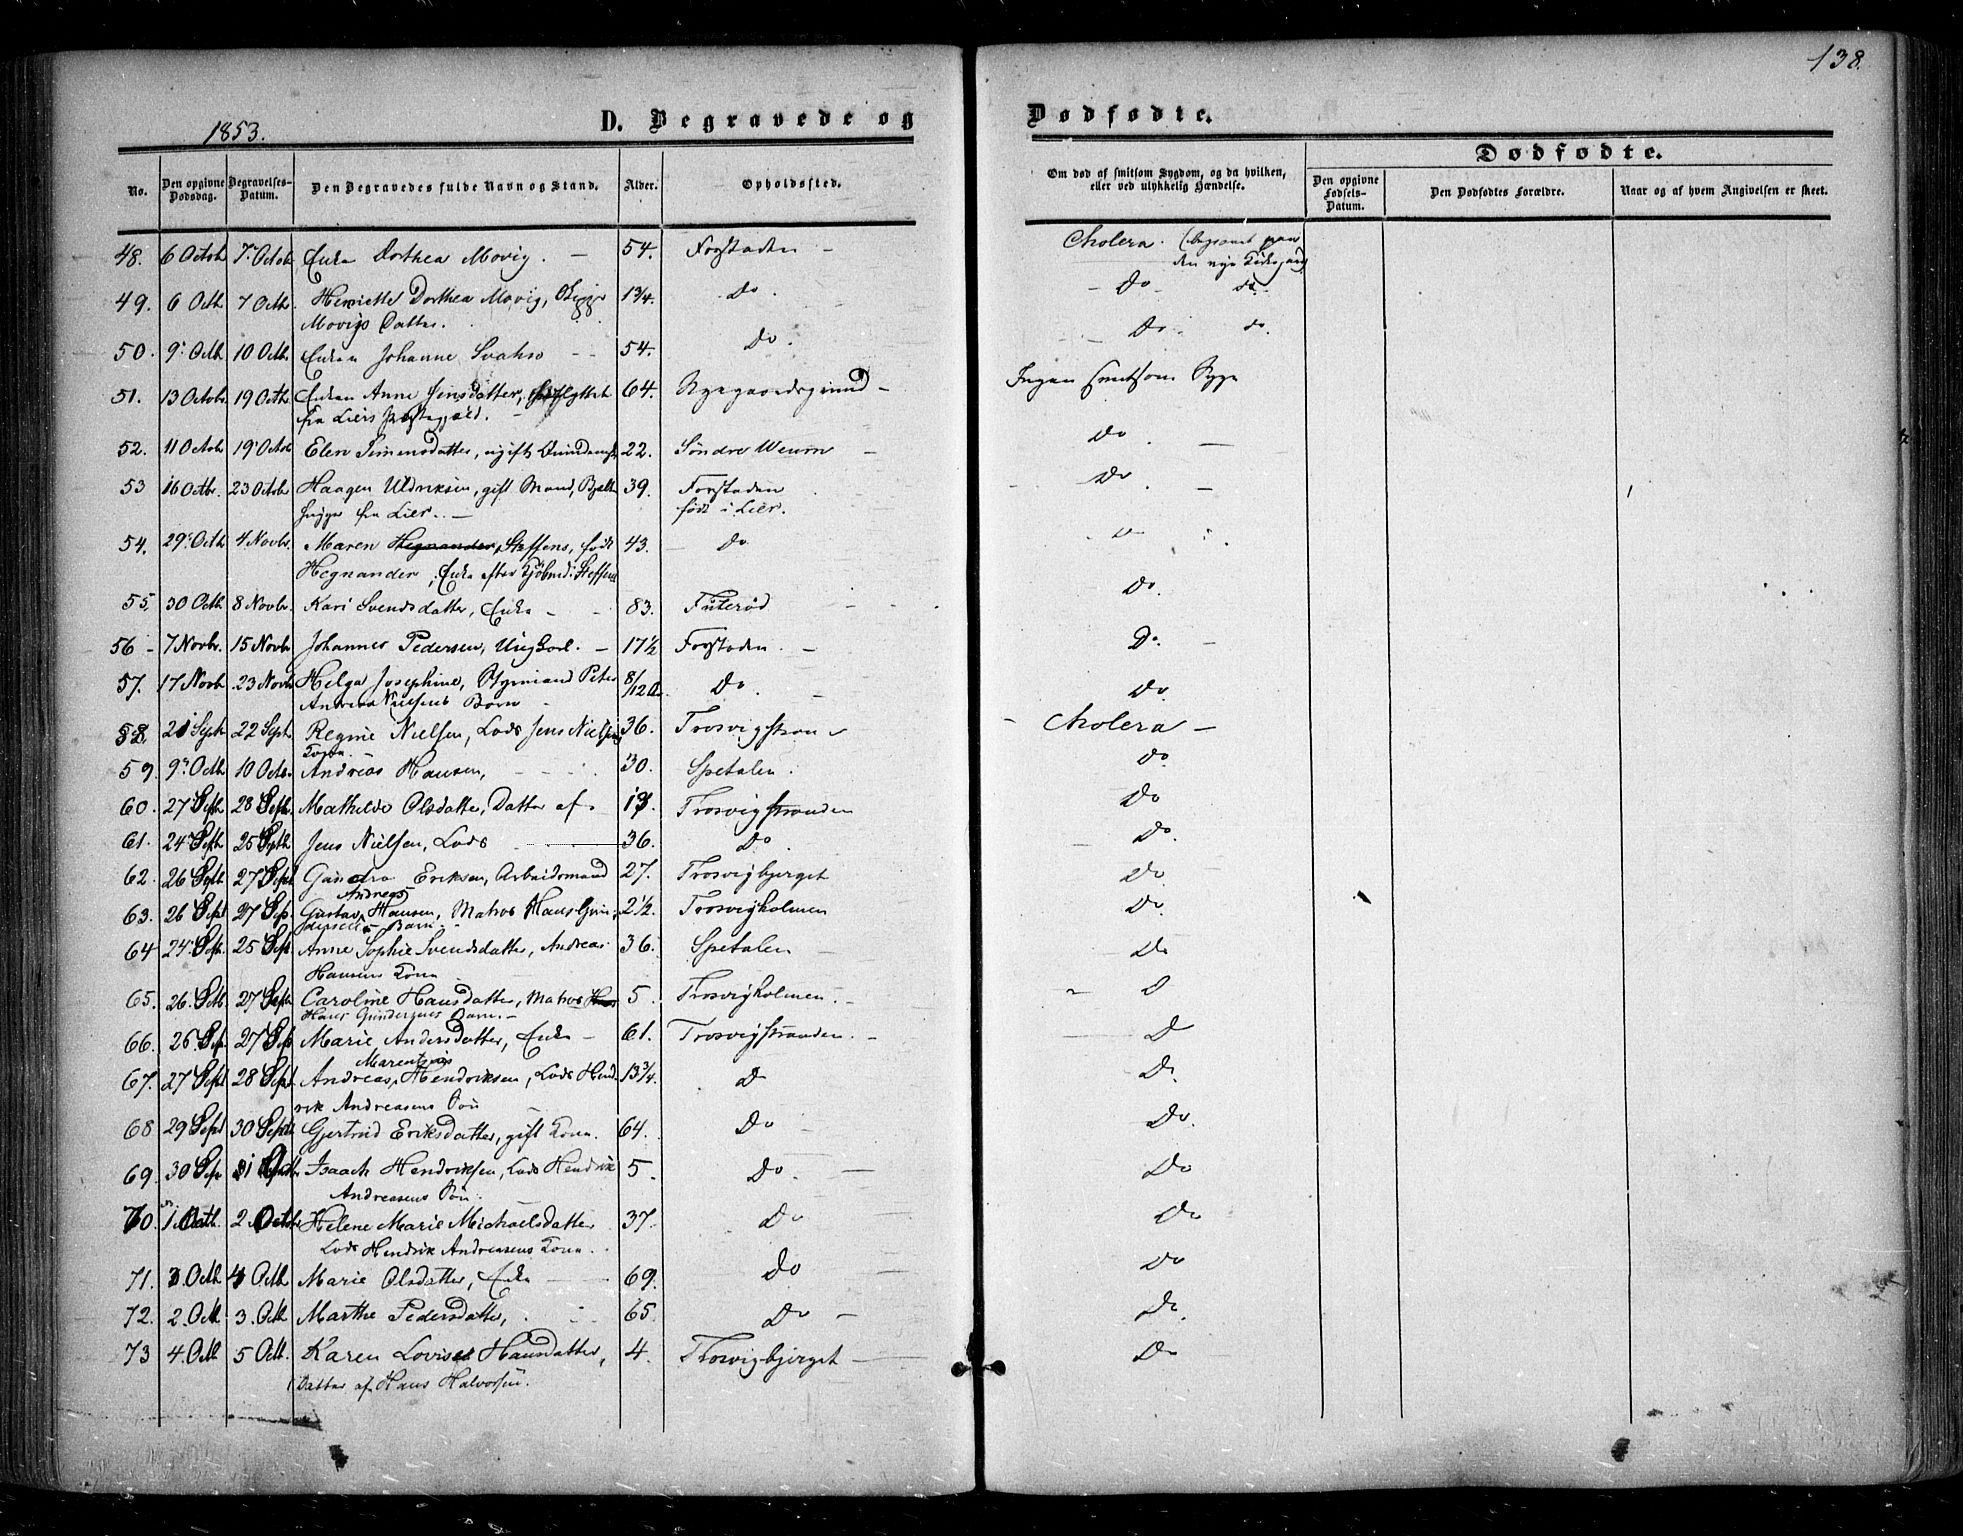 138.
1853.
D. Begravede og Dødfødte.
Dødfødte.
No.
Den opgivne Dødsdag.
Begravelses-Datum.
Den Begravedes fulde Navn og Stand.
Alder.
Opholdssted.
Om død af smitsom Sygdom, og da hvilken, eller ved ulykkelig Hændelse.
Den opgivne Fødsels-Datum.
Den Dødfødtes Forældre.
Naar og af hvem Angivelsen er skeet.
48. 6 Octob 7. Octob Enke Dorthea Movig. - 54. Forstaden - Cholera. (begravet paa
den nye
49. 6 Octb 7 Octb. Henriette Dorthea Movig, 1 3/4. Do. Do - do.
Movigs Datter.
50. 9. Octb 10 Octb. Enken Johanne -- 54. Do. Do. do.
51. 13 Octobr. 19 Octb. Enken Anne Jensdatter, 64. Nygaardsgrund - Ingen smitsom Syge
fra Liers Præstegjeld.
52. 11 Octob. 19 Octob Elen Simensdatter, ugift 22. Søndre - Do.
53 16 Octbr. 23 Octob Haagen Uldriksen, gift Mand, 39. Forstaden Do
fra Lier. - født i Lier.
54. 29. Octb 4 Novbr. Maren Hegnander, Steffens, født 43. Do Do
Hegnander, Enke efter Kjøbmd: Steffens
55. 30 Octb. 8 Novbr. Kari Svendsdatter, Enke - 83. Do.
56 - 7 Novbr. 15 Novb. Johannes Pedersen, Ungkarl. - 17 1/2 Forstaden. - Do. -
57. 17 Novb. 23 Novb. Helga Josephine, Peter 8/12 Do. - Do
Andreas Nielsens Barn -
58. 21 Sept. 22 Sept. Regine Nielsen, Lods Jens Nielsens 36. Cholera -
Kone. -
59. 9. Octb. 10 Octo. Andreas Hansen, 30. Spetalen. Do.
60. 27 Septb. 28 Septb. Mathilde Olsdatter, Datter af. 13. Trosvigstranden Do
61. 24 Septb 25 Septb. Jens Nielsen, Lods 36. Do. Do.
62. 26 Septb 27 Sept Eriksen, Arbeidsmand 27. Trosvigbjerget Do
Andreas
63. 26 Sept 27 Sep. Gustav Hansen, Matros Hans 2 1/2. Trosvigholmen Do.
Barn. -
64 24. Sept. 25 Sep. Anne Sophie Svendsdatter, Andreas 36. Spetalen - Do
Hansens Kone
65. 26. Septb 27 Septb Caroline Hansdatter, Matros 5. Trosvigholmen. - D
Hans Gundersens Barn. -
66. 26. Sep. 27 Sep Marie Andersdatter, Enke - 61. Trosvigstranden. - D
67. 27 Sept 28 Sept. Andreas, Hendriksen, Lods Hend- 13 3/4. D Do.
rik Andreasens Søn
68 29 Sept 30 Septb Gjertrud Eriksdatter, gift Kone. 64. Do - Do.
69. 30 Sep Isaach Hendriksen, Lods Hendrik 5. Do. - Do
Andreasens Søn.
70. 1. Octb. 2 Octob Helene Marie Michaelsdatter 37. Do Do
Lods Hendrik Andreasens Kone.
71. 3. Octb 4 Octb. Marie Olsdatter, Enke - 69. Do Do
72. 2. Octb 3. Octb Marthe Pedersdatter, 65. Do - Do.
73 4. Octb 5 Octb. Karen Lovise Hansdatter, 4. Trosvigbjerget - Do
Datter af Hans Halvorsen.